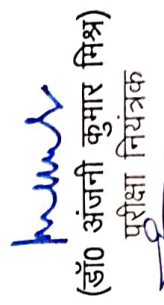 (डॉ० अंजनी कुमार मिश्र)
परीक्षा नियंत्रक